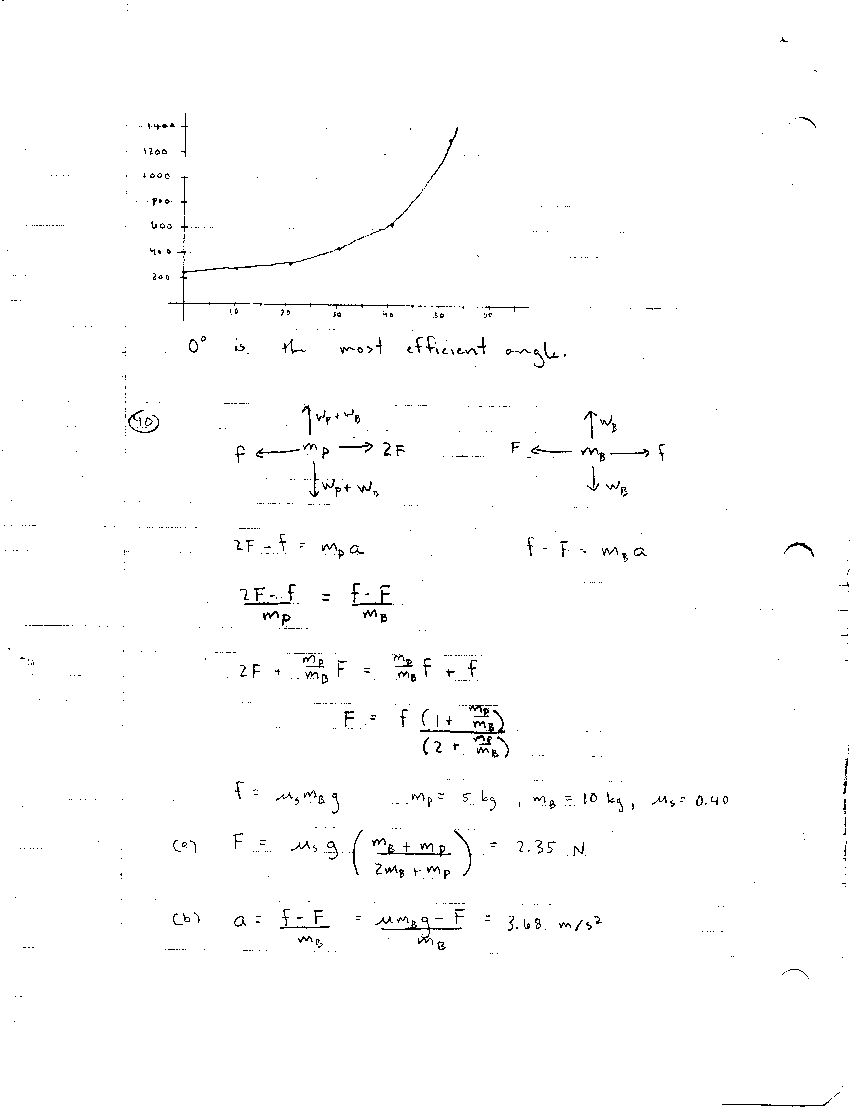 1400
1200
1000
800
600
400
200
10 20 30 40 50
0° is the most efficient angle.
40
W_P + W_B W_B
f m_P 2F F m_B f
W_P + W_B W_B
2F - f = m_P a f - F = m_B a
(2F - f)/m_P = (f - F)/m_B
2F + (m_P/m_B) F = (m_P/m_B) f + f
F = f (1 + m_P/m_B)/(2 + m_P/m_B)
f = μ_s m_B g m_P = 5 kg, m_B = 10 kg, μ_s = 0.40
(a) F = μ_s g ((m_B + m_P)/(2m_B + m_P)) = 2.35 N
(b) a = (f - F)/m_B = (μ m_B g - F)/m_B = 3.68 m/s²